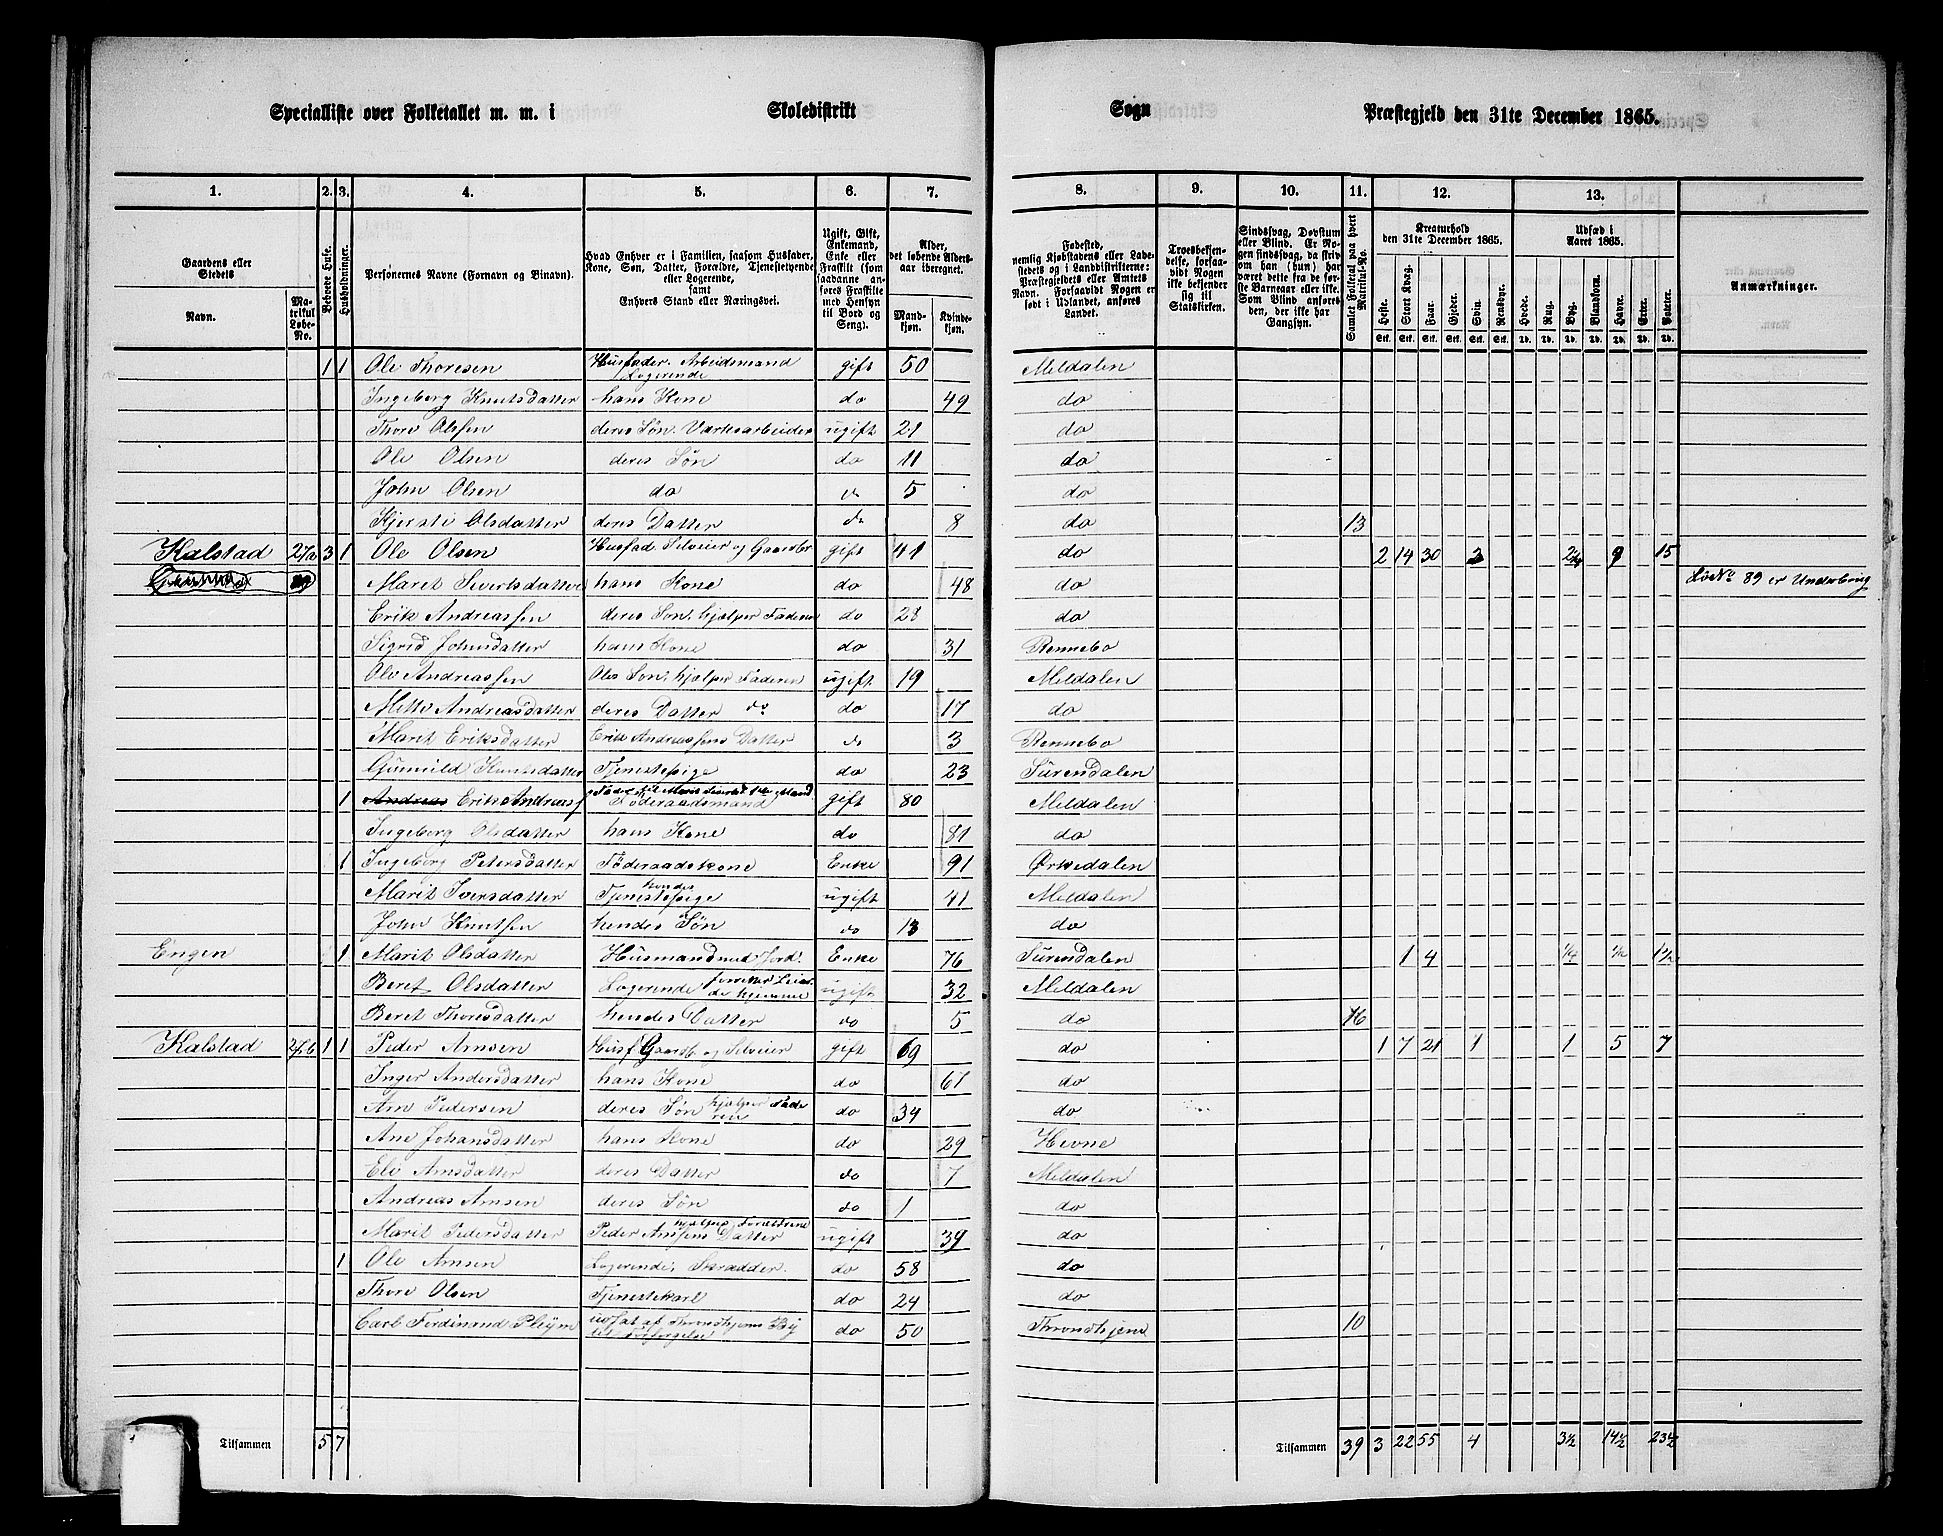 Specialliste over Folketallet m. m. i Skoledistrikt Sogn Præstegjeld den 31te December 1865.
1. 2. 3. 4. 5. 6. 7. 8. 9. 10. 11. 12. 13.
Gaardens eller Stedets Navn. Matrikul Løbe-No. Beboede Huse. Husholdninger. Personernes Navne (Fornavn og Binavn). Hvad Enhver er i Familien, saasom Husfader, Kone, Søn, Datter, Forældre, Tjenestetyende eller Logerende, samt Enhvers Stand eller Næringsvei. Ugift, Gift, Enkemand, Enke eller Fraskilt (som saadanne anføres Fraskilte med Hensyn til Bord og Seng). Alder, det løbende Aldersaar iberegnet. Mandkjøn. Kvindekjøn.
Fødested, nemlig Kjøbstadens eller Ladestedets og i Landdistrikterne: Præstegjeldets eller Amtets Navn. Forsaavidt Nogen er født i Udlandet, anføres Landet. Troesbekjendelse, forsaavidt Nogen ikke bekjender sig til Statskirken. Sindssvag, Døvstum eller Blind. Er Nogen sindssvag, da skrives om han (hun) har været dette fra de første Barneaar eller ikke. Som Blind anføres den, der ikke har Gangsyn. Samlet Folketal paa hvert Matrikul-No. Kreaturhold den 31te December 1865. Heste. Stort Kvæg. Faar. Gjeder. Svin. Rensdyr. Udsæd i Aaret 1865. Hvede. Rug. Byg. Blandkorn. Havre. Erter. Poteter. Anmærkninger.
1 1 Ole Thoresen Husfader. Arbeidsmand Logerende gift 50 Meldalen
Ingeborg Knutsdatter hans Kone do 49 do
Thore Olssen deres Søn. Værksarbeider ugift 21 do
Ole Olsen deres Søn do 11 do
John Olsen do do 5 do
Kjersti Olsdatter deres Datter do 8 do 13
Kalstad 27a 3 1 Ole Olsen Husfad. Selveier og Gaardbr gift 41 do 2 14 30 3 2¼ 9 15
Marit Sivertsdatter hans Kone do 48 do LøNo 89 er Underbrug
Erik Andreassen deres Søn. hjælper Faderen do 28 do
Sigrid Johnsdatter hans Kone do 31 Rennebo
Ole Andreassen Oles Søn. hjælper Faderen ugift 19 Meldalen
Mette Andreasdatter deres Datter do do 17 do
Marit Eriksdatter Erik Andreassens Datter do 3 Rennebo
Gunnild Knutsdatter Tjenestepige do 23 Surendalen
1 Andreas Erik Andreass Føderaadsmand gift 80 Meldalen
Ingeborg Olsdatter hans Kone do 81 do
1 Ingeborg Petersdatter Føderaadskone Enke 91 Ørkedalen
Marit Iversdatter hendes Tjenestepige ugift 41 Meldalen
John Knutsen hendes Søn do 13 do
Engen 1 Marit Olsdatter Husmand med Jord. Enke 76 Surendalen 1 4 ¼ ½ 1½
Beret Olsdatter Logerende ugift 32 Meldalen
Beret Thoresdatter hendes Datter do 5 do 16
Kalstad 27b 1 1 Peder Arnsen Husf Gaardb. og Selveier gift 69 do 1 7 21 1 1 5 7
Inger Andersdatter hans Kone do 67 do
Arn Pedersen deres Søn hjælper Faderen do 34 do
Ane Johansdatter hans Kone do 29 Hevne
Eli Arnsdatter deres Datter do 7 Meldalen
Andreas Arnsen deres Søn do 1 do
Marit Pedersdatter Peder Arnsens Datter hjælper Forældrene ugift 39 do
1 Ole Arnsen Logerende, Skrædder. do 58 do
Thore Olsen Tjenestekarl do 24 do
Carl Ferdinand Pleym udsat af Throndhjems By til Forsørgelse do 50 Throndhjem 10
Tilsammen 5 7 Tilsammen 39 3 22 55 4 3½ 14½ 23½